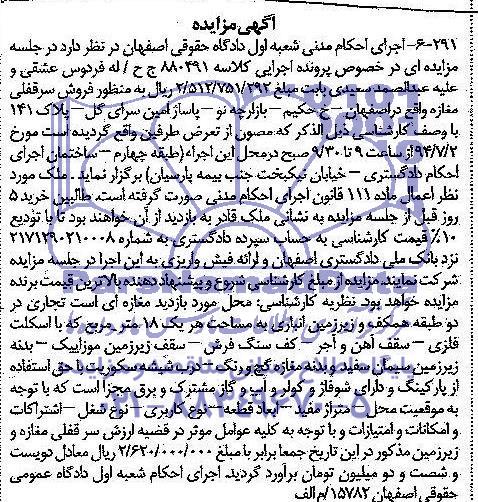 آگهی مزایده
۶-۲۹۱- اجرای احکام مدنی شعبه اول دادگاه حقوقی اصفهان در نظر دارد در جلسه
مزایده ای در خصوص پرونده اجرایی کلاسه ۸۸۰۴۹۱ ج ح / له فردوس عشقی و
علیه عبدالصمد سعیدی بابت مبلغ ۲/۵۱۲/۷۵۱/۲۹۲ ریال به منظور فروش سرقفلی
مغازه واقع در اصفهان – خ حکیم – بازارچه نو – پاساژ امین سرای گل – پلاک ۱۴۱
با وصف کارشناسی ذیل الذکر که مصون از تعرض طرفین واقع گردیده است مورخ
۹۴/۷/۲ از ساعت ۹ تا ۹/۳۰ صبح در محل این اجراء (طبقه چهارم – ساختمان اجرای
احکام دادگستری – خیابان نیکبخت جنب بیمه پارسیان) برگزار نماید. ملک مورد
نظر اعمال ماده ۱۱۱ قانون اجرای احکام مدنی صورت گرفته است. طالبین خرید ۵
روز قبل از جلسه مزایده به نشانی ملک قادر به بازدید از آن خواهند بود تا با تودیع
۱۰٪ قیمت کارشناسی به حساب سپرده دادگستری به شماره ۲۱۷۱۲۹۰۲۱۰۰۰۸
نزد بانک ملی دادگستری اصفهان و ارائه فیش واریزی به این اجرا در جلسه مزایده
شرکت نمایند. مزایده از مبلغ کارشناسی شروع و پیشنهاد دهنده بالاترین قیمت برنده
مزایده خواهد بود. نظریه کارشناسی: محل مورد بازدید مغازه ای است تجاری در
دو طبقه همکف و زیرزمین انباری به مساحت هر یک ۱۸ متر مربع که با اسکلت
فلزی – سقف آهن و آجر – کف سنگ فرش – سقف زیرزمین موزاییک – بدنه
زیرزمین سیمان سفید و بدنه مغازه گچ و رنگ با درب شیشه سکوریت با حق استفاده
از پارکینگ و دارای شوفاژ و کولر و آب و گاز مشترک و برق مجزا است که با توجه
به موقعیت محل – متراژ مفید – ابعاد قطعه – نوع کاربری – نوع شغل – اشتراکات
و امکانات و امتیازات و با توجه به کلیه عوامل موثر در قضیه ارزش سر قفلی مغازه و
زیرزمین مذکور در این تاریخ جمعا برابر با مبلغ ۲/۶۲۰/۰۰۰/۰۰۰ ریال معادل دویست
و شصت و دو میلیون تومان برآورد گردید. اجرای احکام شعبه اول دادگاه عمومی
حقوقی اصفهان ۱۵۷۸۲/م الف